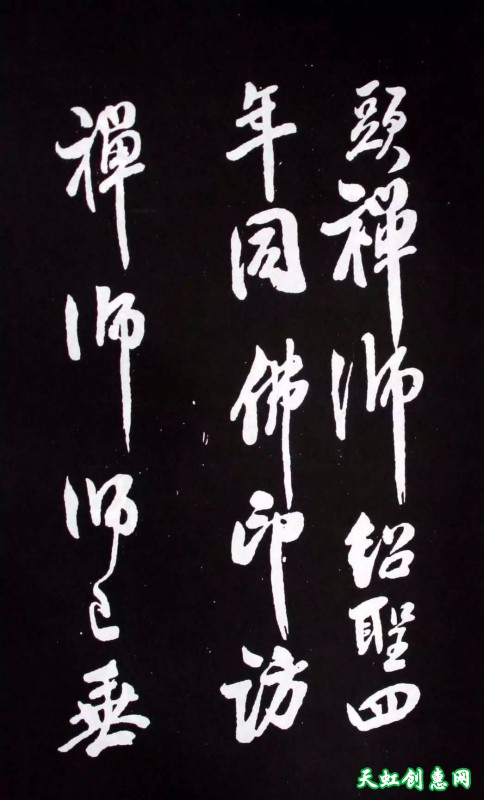 頭禪師紹聖四
年同佛印訪
禪師師已垂
天虹创惠网